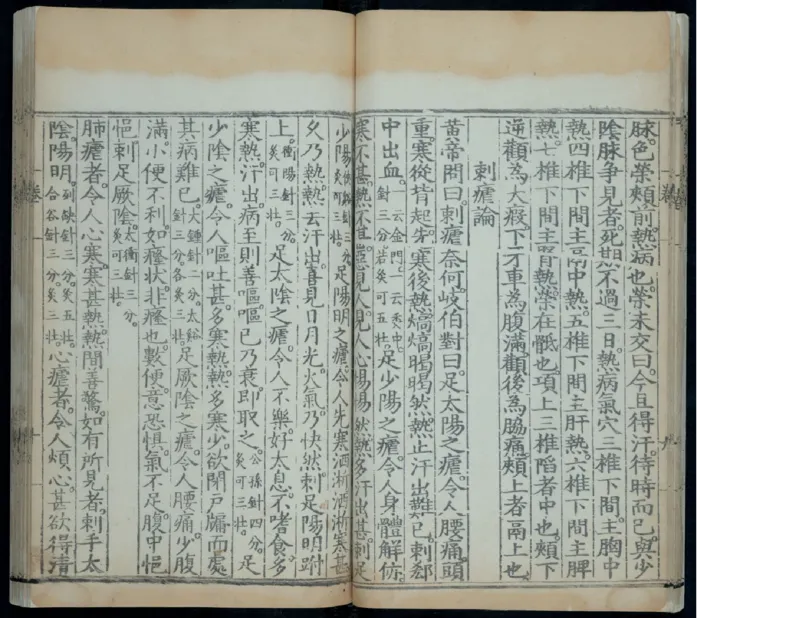 脉。色榮頰前熱病也。榮未交曰。今且得汗。待時而已。與少
陰脉爭見者。死期不過三日。熱病氣穴三椎下間主胸中
熱四椎下間主鬲中熱。五椎下間主肝熱。六椎下間主脾
熱。七椎下間主腎熱。榮在骶也。項上三椎陷者中也。頰下
逆顴為大瘕。下牙車為腹滿。顴後為脇痛。頰上者鬲上也。
刺瘧論
黃帝問曰。刺瘧奈何。岐伯對曰。足太陽之瘧。令人腰痛頭
重。寒從背起。先寒後熱。熇熇暍暍然。熱止汗出難已。刺郄
中出血。一云金門。一云委中。針三分。若灸可五壯。足少陽之瘧。令人身體解㑊。
寒不甚。熱不甚。惡見人。見人心惕惕然。熱多汗出甚。刺足
少陽。俠谿針三分。灸可三壯。足陽明之瘧。令人先寒洒淅洒淅。寒甚
久乃熱。熱去汗出。喜見日月光火氣。乃快然。刺足陽明跗
上。衝陽針三分。灸可三壯。足太陰之瘧。令人不樂。好太息。不嗜食。多
寒熱。汗出。病至則善嘔。嘔已乃衰。即取之。公孫針四分。灸可三壯。足
少陰之瘧。令人嘔吐甚。多寒熱。熱多寒少。欲閉戶牖而處
其病難已。大鍾針二分。太谿針三分。各灸三壯。足厥陰之瘧。令人腰痛。少腹
滿。小便不利。如癃狀。非癃也。數便。意恐懼。氣不足。腹中悒
悒。刺足厥陰。太衝針三分。灸可三壯。
肺瘧者。令人心寒。寒甚熱。熱間善驚。如有所見者。刺手太
陰陽明。列缺針三分。灸五壯。合谷針三分。灸三壯。心瘧者。令人煩心甚。欲得清